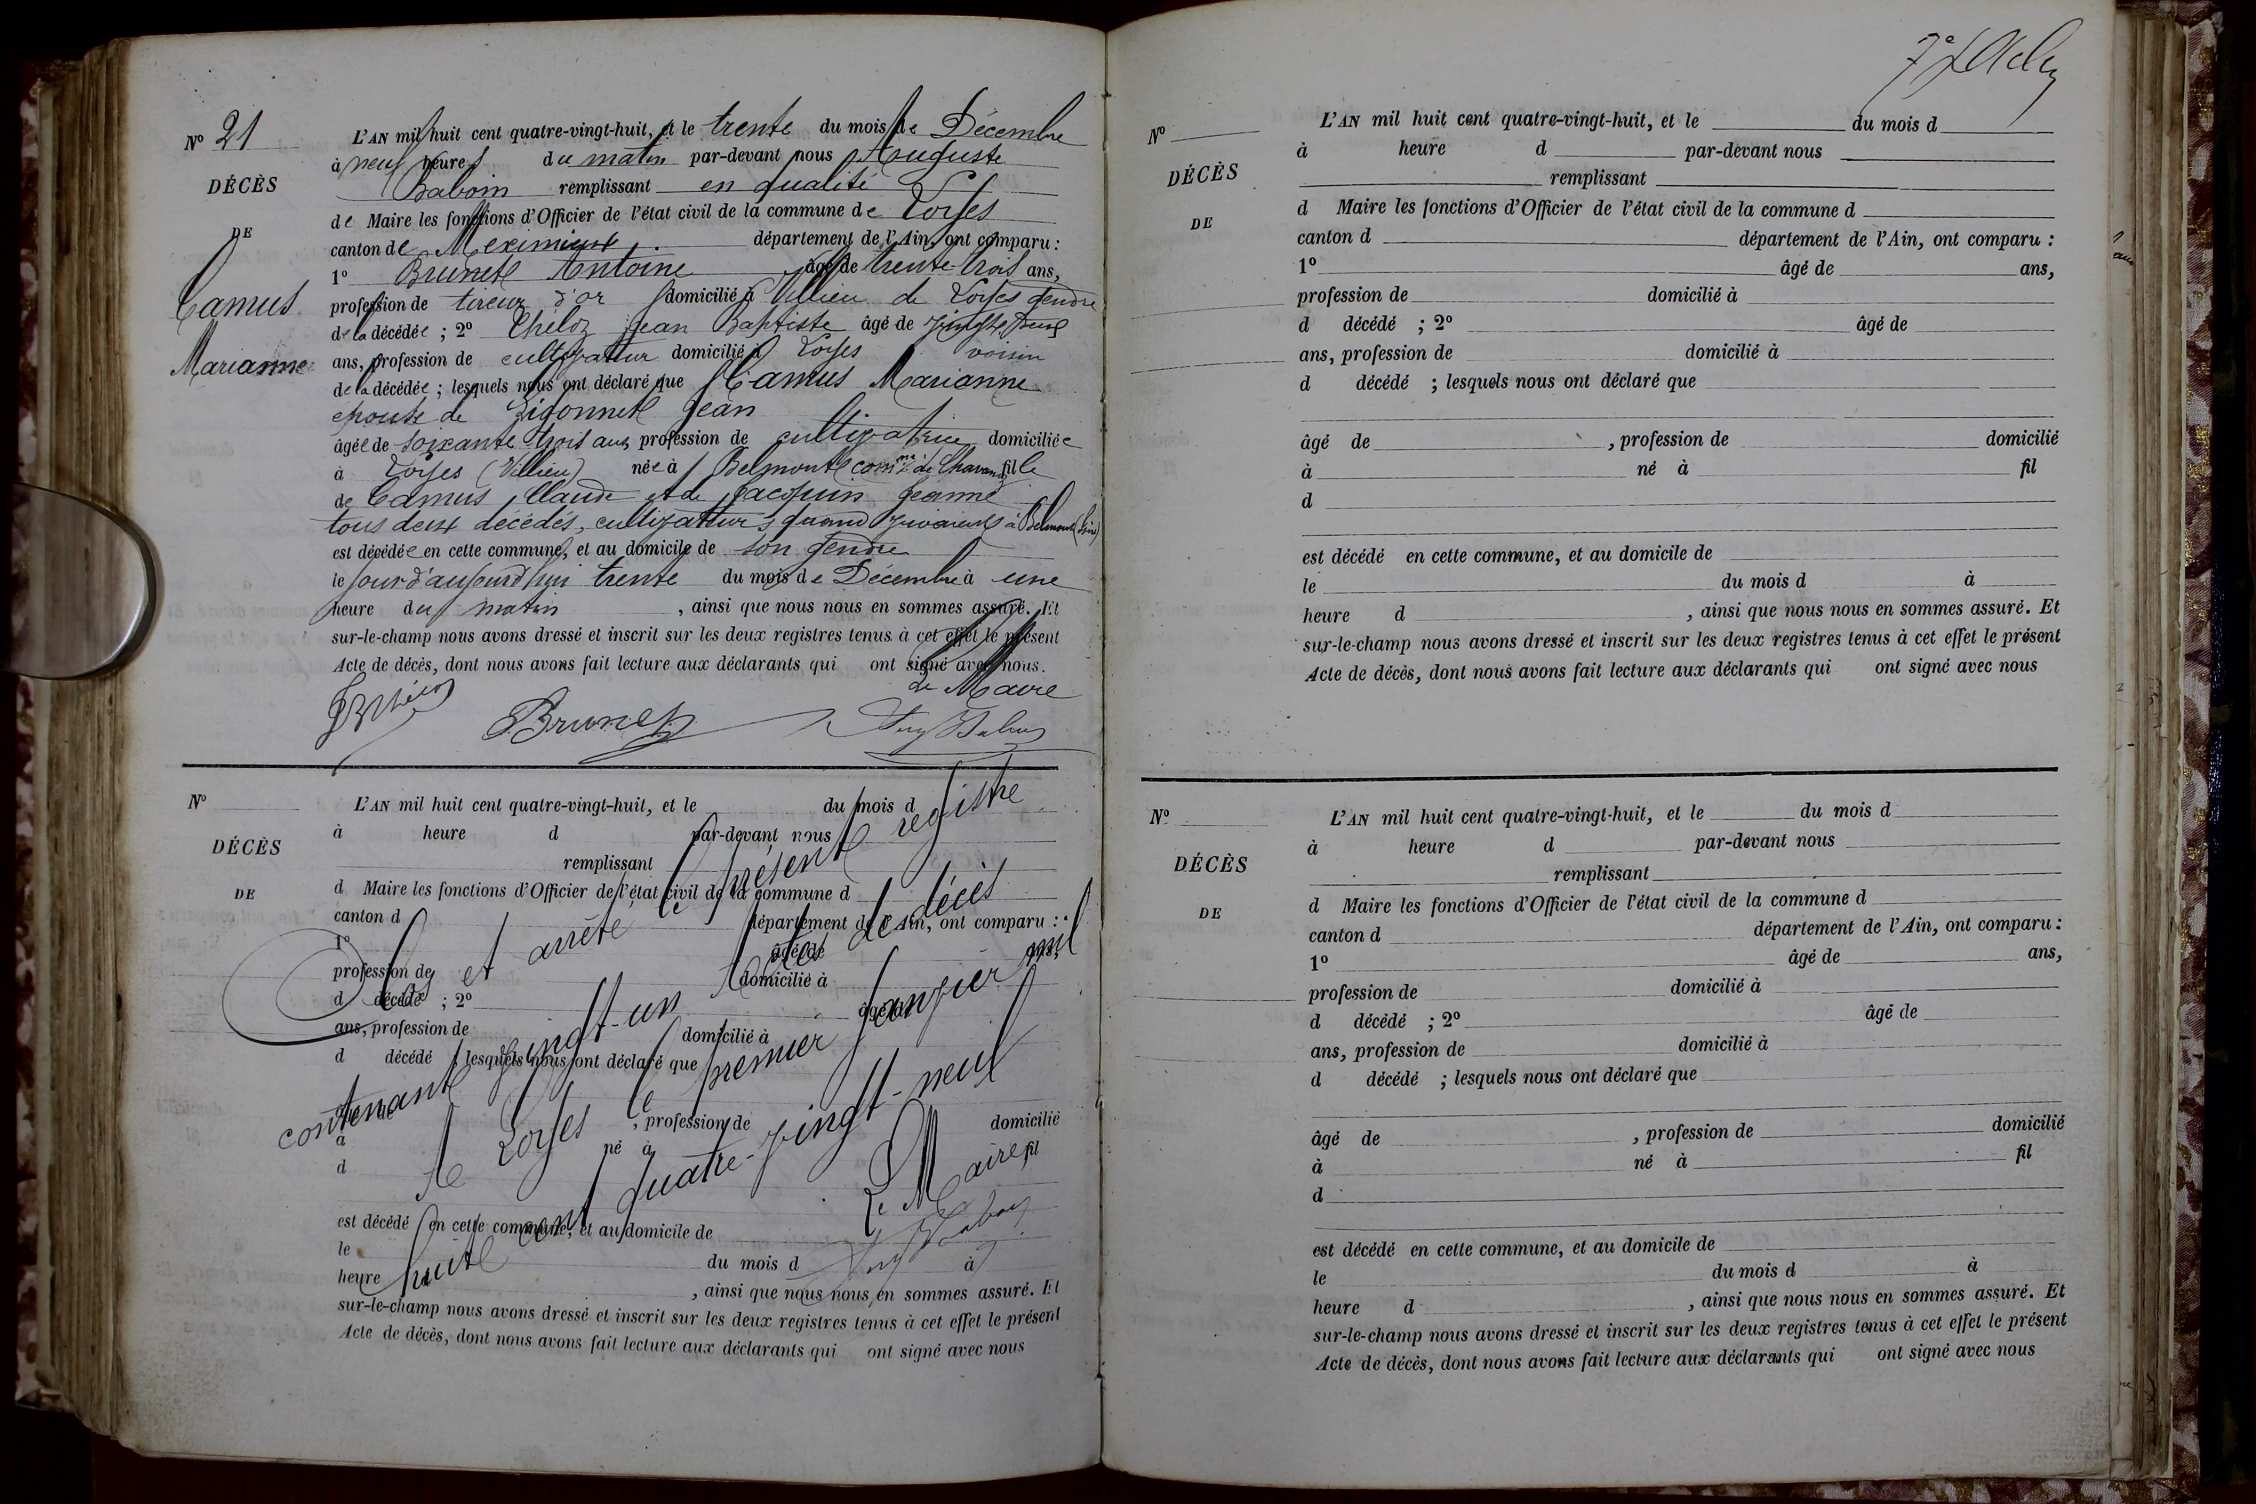 N° 21
DÉCÈS
DE
Camus
Marianne
L'AN mil huit cent quatre-vingt-huit, et le trente du mois de Décembre
à neuf heures du matin par-devant nous Auguste
Baboin remplissant en qualité
de Maire les fonctions d'Officier de l'état civil de la commune de Loyes
canton de Meximieux département de l'Ain, ont comparu :
1° Brunet Antoine âgé de trente-trois ans,
profession de tireur d'or domicilié à Villieu de Loyes gendre
de la décédée ; 2° Jean Baptiste âgé de vingt neuf
ans, profession de cultivateur domicilié à Loyes voisin
de la décédée ; lesquels nous ont déclaré que Camus Marianne
épouse de Gigonnet Jean
âgée de soixante trois ans, profession de cultivatrice domiciliée
à Loyes (Villieu) née à Belmont comne de fille
de Camus Claude et de Jacquin Jeanne
tous deux décédés, cultivateurs quand vivaient à Belmont (Ain)
est décédée en cette commune, et au domicile de son gendre
le jour d'aujourd'hui trente du mois de Décembre à une
heure du matin , ainsi que nous nous en sommes assuré. Et
sur-le-champ nous avons dressé et inscrit sur les deux registres tenus à cet effet le présent
Acte de décès, dont nous avons fait lecture aux déclarants qui ont signé avec nous.
Le Maire
Brunet
N°
DÉCÈS
DE
L'AN mil huit cent quatre-vingt-huit, et le du mois d
à heure d par-devant nous
remplissant
d Maire les fonctions d'Officier de l'état civil de la commune d
canton d département de l'Ain, ont comparu :
1° âgé de ans,
profession de domicilié à
d décédé ; 2° âgé de
ans, profession de domicilié à
d décédé ; lesquels nous ont déclaré que
âgé de , profession de domicilié
à né à fil
d
est décédé en cette commune, et au domicile de
le du mois d à
heure d , ainsi que nous nous en sommes assuré. Et
sur-le-champ nous avons dressé et inscrit sur les deux registres tenus à cet effet le présent
Acte de décès, dont nous avons fait lecture aux déclarants qui ont signé avec nous
Clos et arrêté le présent registre
contenant vingt-un actes de décès
A Loyes le premier Janvier mil
huit cent quatre-vingt-neuf
Le Maire
N°
DÉCÈS
DE
L'AN mil huit cent quatre-vingt-huit, et le du mois d
à heure d par-devant nous
remplissant
d Maire les fonctions d'Officier de l'état civil de la commune d
canton d département de l'Ain, ont comparu :
1° âgé de ans,
profession de domicilié à
d décédé ; 2° âgé de
ans, profession de domicilié à
d décédé ; lesquels nous ont déclaré que
âgé de , profession de domicilié
à né à fil
d
est décédé en cette commune, et au domicile de
le du mois d à
heure d , ainsi que nous nous en sommes assuré. Et
sur-le-champ nous avons dressé et inscrit sur les deux registres tenus à cet effet le présent
Acte de décès, dont nous avons fait lecture aux déclarants qui ont signé avec nous
N°
DÉCÈS
DE
L'AN mil huit cent quatre-vingt-huit, et le du mois d
à heure d par-devant nous
remplissant
d Maire les fonctions d'Officier de l'état civil de la commune d
canton d département de l'Ain, ont comparu :
1° âgé de ans,
profession de domicilié à
d décédé ; 2° âgé de
ans, profession de domicilié à
d décédé ; lesquels nous ont déclaré que
âgé de , profession de domicilié
à né à fil
d
est décédé en cette commune, et au domicile de
le du mois d à
heure d , ainsi que nous nous en sommes assuré. Et
sur-le-champ nous avons dressé et inscrit sur les deux registres tenus à cet effet le présent
Acte de décès, dont nous avons fait lecture aux déclarants qui ont signé avec nous